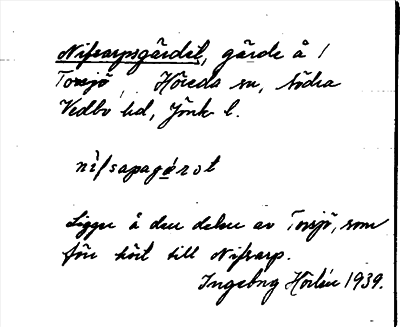 Nifsarpsgärdet, gärde å 1
Torsjö, Höreda sn, Södra
Vedbo hd, Jönk l.
nifsapagärot
Ligger å den delen av Torsjö, som
förr hört till Nifsarp.
Ingeborg Hörlin 1939.